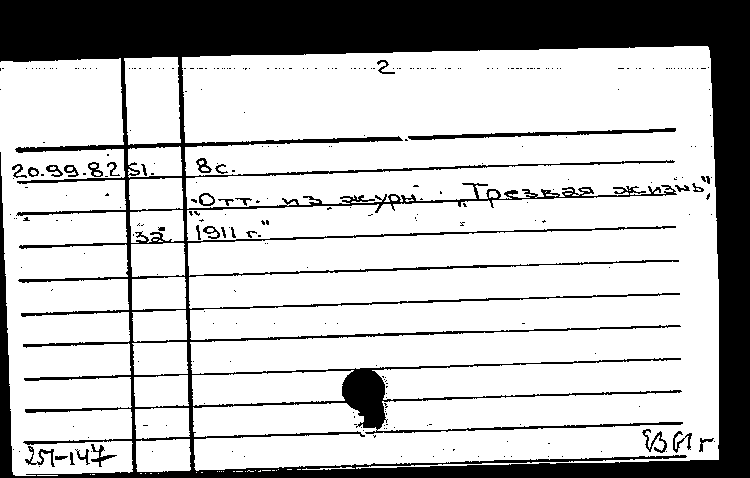 2
20.99.82 51. 8 с.
"Отт. из журн. „Трезвая жизнь",
32° 1911 г."
251-147